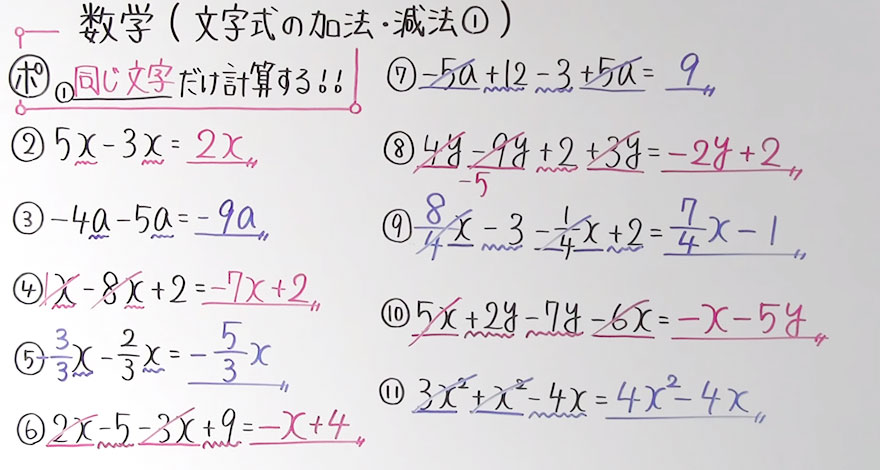 数学(文字式の加法・減法①)
ポ ①同じ文字だけ計算する!!
② 5x - 3x = 2x
③ -4a - 5a = -9a
④ 1x - 8x + 2 = -7x + 2
⑤ -3/3x - 2/3x = -5/3x
⑥ 2x - 5 - 3x + 9 = -x + 4
⑦ -5a + 12 - 3 + 5a = 9
⑧ 4y - 9y + 2 + 3y = -2y + 2
-5
⑨ 8/4x - 3 - 1/4x + 2 = 7/4x - 1
⑩ 5x + 2y - 7y - 6x = -x - 5y
⑪ 3x² + x² - 4x = 4x² - 4x